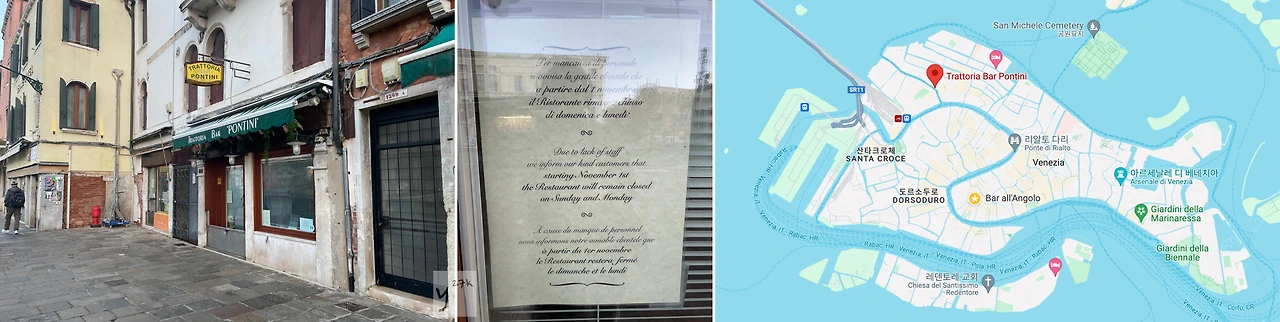 TRATTORIA
PONTINI
TRATTORIA BAR "PONTINI"
1268 A
y 27k
Per mancanza di personale
si avvisa la gentile clientela che
a partire dal 1 novembre
il Ristorante rimarrà chiuso
di domenica e lunedì
Due to lack of staff
we inform our kind customers that
starting November 1st
the Restaurant will remain closed
on Sunday and Monday
A cause du manque de personnel
vous informons notre aimable clientèle que
à partir du 1er novembre
le Restaurant restera fermé
le dimanche et le lundi
San Michele Cemetery
공원묘지
Trattoria Bar Pontini
SR11
산타크로체
SANTA CROCE
리알토 다리
Ponte di Rialto
Venezia
아르세날레 디 베네치아
Arsenale di Venezia
도르소두로
DORSODURO
Bar all'Angolo
Giardini della
Marinaressa
Giardini della
Biennale
레덴토레 교회
Chiesa del Santissimo
Redentore
Venezia, IT - Rabac, HR
Rabac, HR - Venezia, IT
Venezia, IT - Pola, HR
Venezia, IT - Rabac, HR
Venezia, IT - Corfu, GR